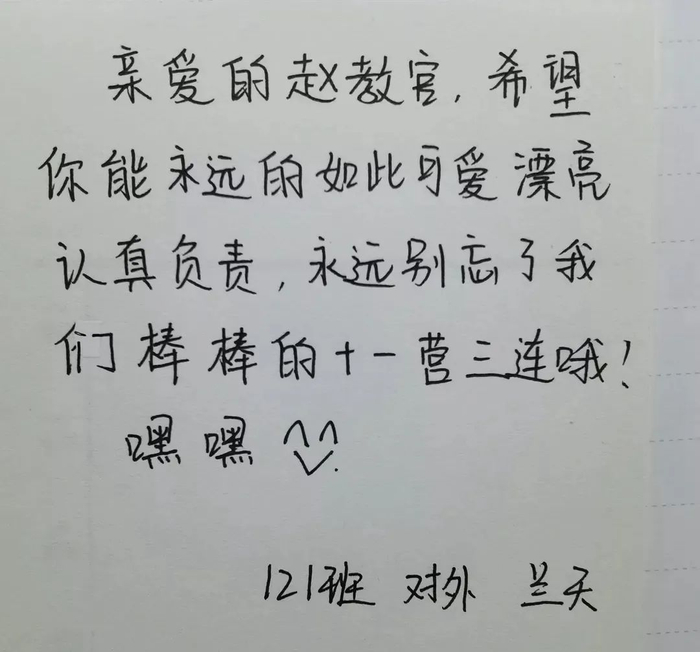 亲爱的赵教官，希望
你能永远的如此可爱漂亮
认真负责，永远别忘了我
们棒棒的十一营三连哦！
嘿嘿 ^^
121班 对外 兰天